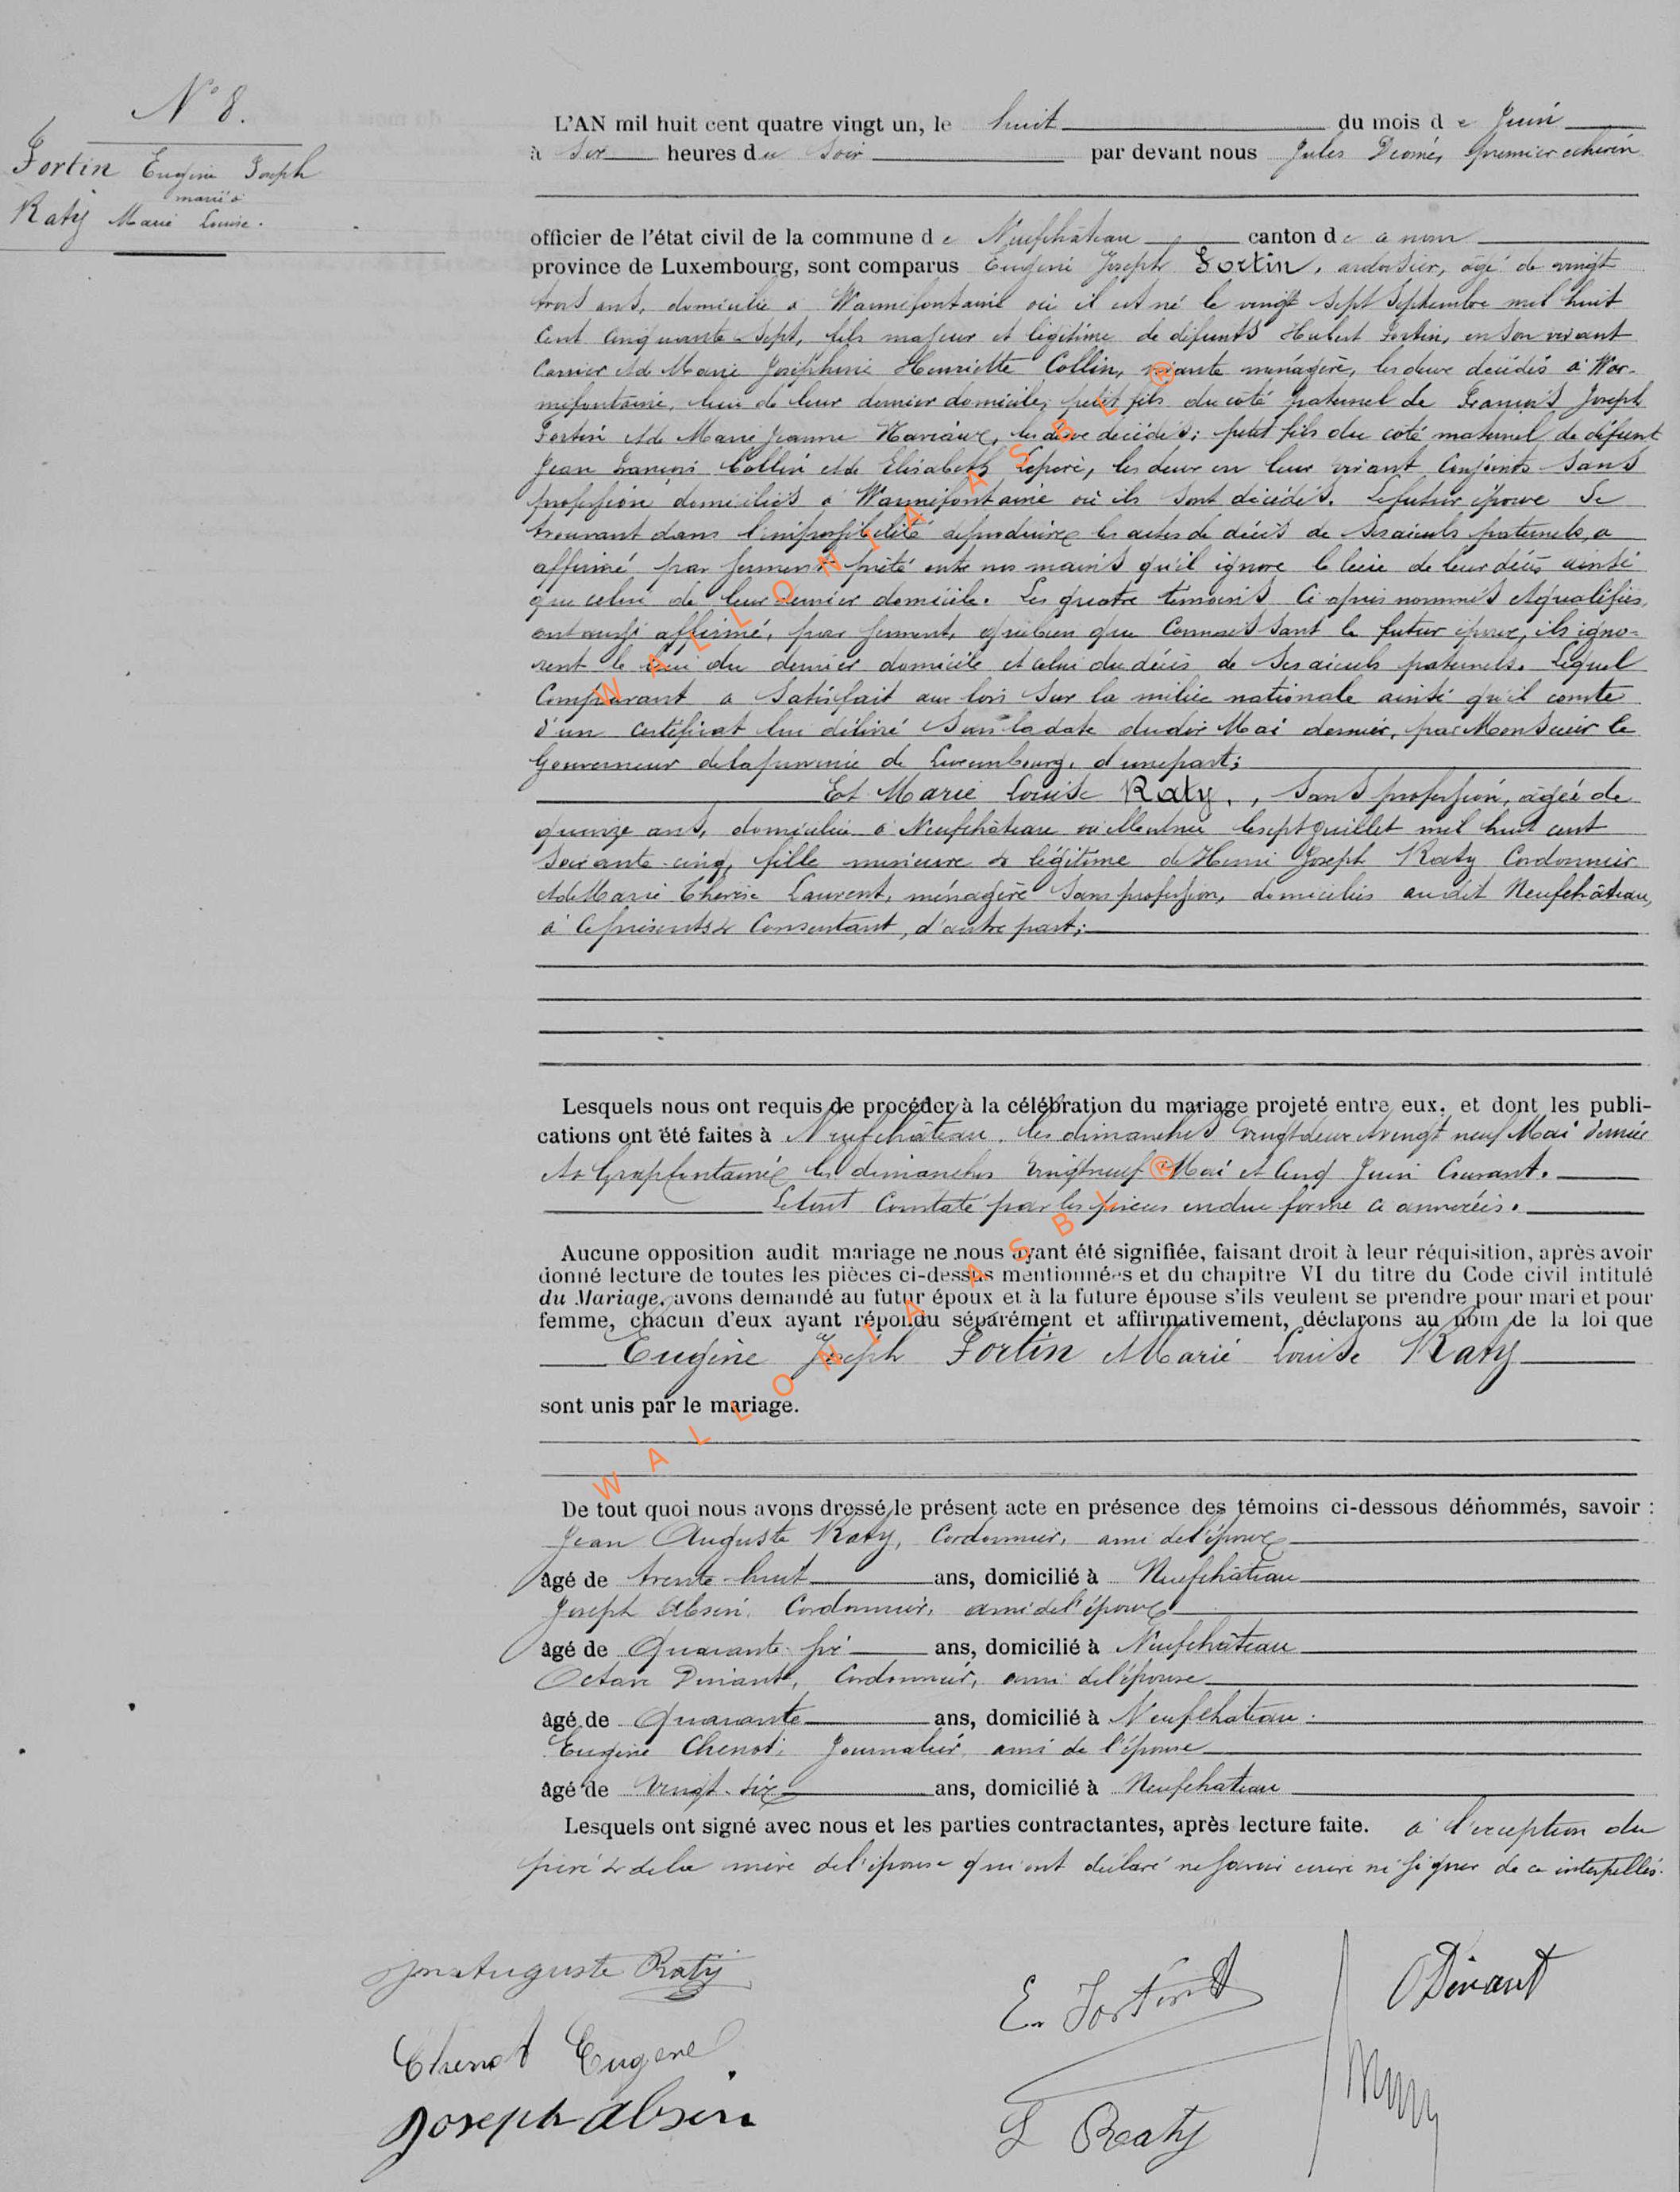 N° 8.
Fortin Eugène Joseph
marié à
Raty Marie Louise.
L'AN mil huit cent quatre vingt un, le huit du mois de Juin
à six heures du soir par devant nous Jules premier échevin
officier de l'état civil de la commune de Neufchâteau canton de ce nom
province de Luxembourg, sont comparus Eugène Joseph Fortin, ardoisier, âgé de vingt
trois ans, domicilié à Warmifontaine où il est né le vingt sept Septembre mil huit
cent cinquante sept, fils majeur et légitime de défunts Hubert Fortin, en son vivant
Carrier et de Marie Joséphine Henriette Collin, vivante ménagère, les deux décédés à War-
mifontaine, lieu de leur dernier domicile; petit fils du coté paternel de François Joseph
Fortin et de Marie Jeanne les deux décédés; petit fils du coté maternel de défunt
Jean François Collin et de Elisabeth les deux en leur vivant Conjoints Sans
profession domiciliés à Warmifontaine où ils sont décédés. Le futur époux se
trouvant dans l'impossibilité de produire les actes de décès de ses aïeuls paternels, a
affirmé par serment prêté entre nos mains qu'il ignore le lieu de leur décès ainsi
que celui de leur dernier domicile. Les quatre témoins Ci après nommés et qualifiés,
ont aussi affirmé, par serment, que bien que Connaissant le futur époux, ils igno-
rent le lieu du dernier domicile et celui du décès de Ses aïeuls paternels. Lequel
Comparant a Satisfait aux lois Sur la milice nationale ainsi qu'il conste
d'un certificat lui délivré Sous la date du dix Mai dernier, par Monsieur le
Gouverneur de la province de Luxembourg, d'une part;
Et Marie Louise Raty, , Sans profession, âgée de
quinze ans, domiciliée à Neufchâteau où elle est née le sept Juillet mil huit cent
soixante-cinq, fille mineure & légitime de Henri Joseph Raty Cordonnier
et de Marie Thérèse Laurent, ménagère Sans profession, domiciliés audit Neufchâteau,
à ce présents & Consentant, d'autre part;
Lesquels nous ont requis de procéder à la célébration du mariage projeté entre eux, et dont les publi-
cations ont été faites à Neufchâteau, les dimanches vingt deux et vingt neuf Mai dernier
et à Grapfontaine les dimanches vingt neuf Mai et Cinq Juin Courant.
Le tout Constaté par les pièces en due forme ci annexées.
Aucune opposition audit mariage ne nous ayant été signifiée, faisant droit à leur réquisition, après avoir
donné lecture de toutes les pièces ci-dessus mentionnées et du chapitre VI du titre du Code civil intitulé
du Mariage, avons demandé au futur époux et à la future épouse s'ils veulent se prendre pour mari et pour
femme, chacun d'eux ayant répondu séparément et affirmativement, déclarons au nom de la loi que
Eugène Joseph Fortin et Marie Louise Raty
sont unis par le mariage.
De tout quoi nous avons dressé le présent acte en présence des témoins ci-dessous dénommés, savoir :
Jean Auguste Raty, Cordonnier, ami de l'époux
âgé de trente-huit ans, domicilié à Neufchâteau
Joseph Absin, Cordonnier, ami de l'époux
âgé de Quarante six ans, domicilié à Neufchâteau
Octave Dinant, Cordonnier, ami de l'épouse
âgé de Quarante ans, domicilié à Neufchâteau.
Eugène Chenot, Journalier, ami de l'épouse
âgé de Vingt-six ans, domicilié à Neufchateau
Lesquels ont signé avec nous et les parties contractantes, après lecture faite. à l'exception du
père & de la mère de l'épouse qui ont déclaré ne savoir écrire ni signer de ce interpellés.
Jean Auguste Raty
E. Fortin
O Dinant
Chenot Eugene
Joseph Absin
L Raty
WALLONIA ASBL ®
WALLONIA ASBL ®